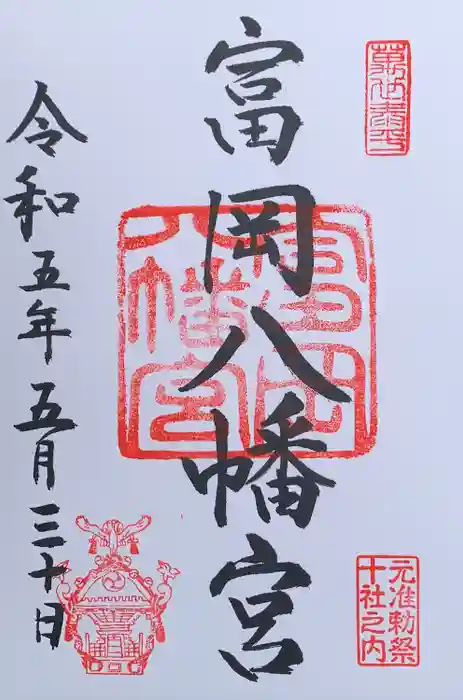 萬世泰平
富岡八幡宮
富岡八幡宮
元准勅祭
十社之内
令和五年五月三十日